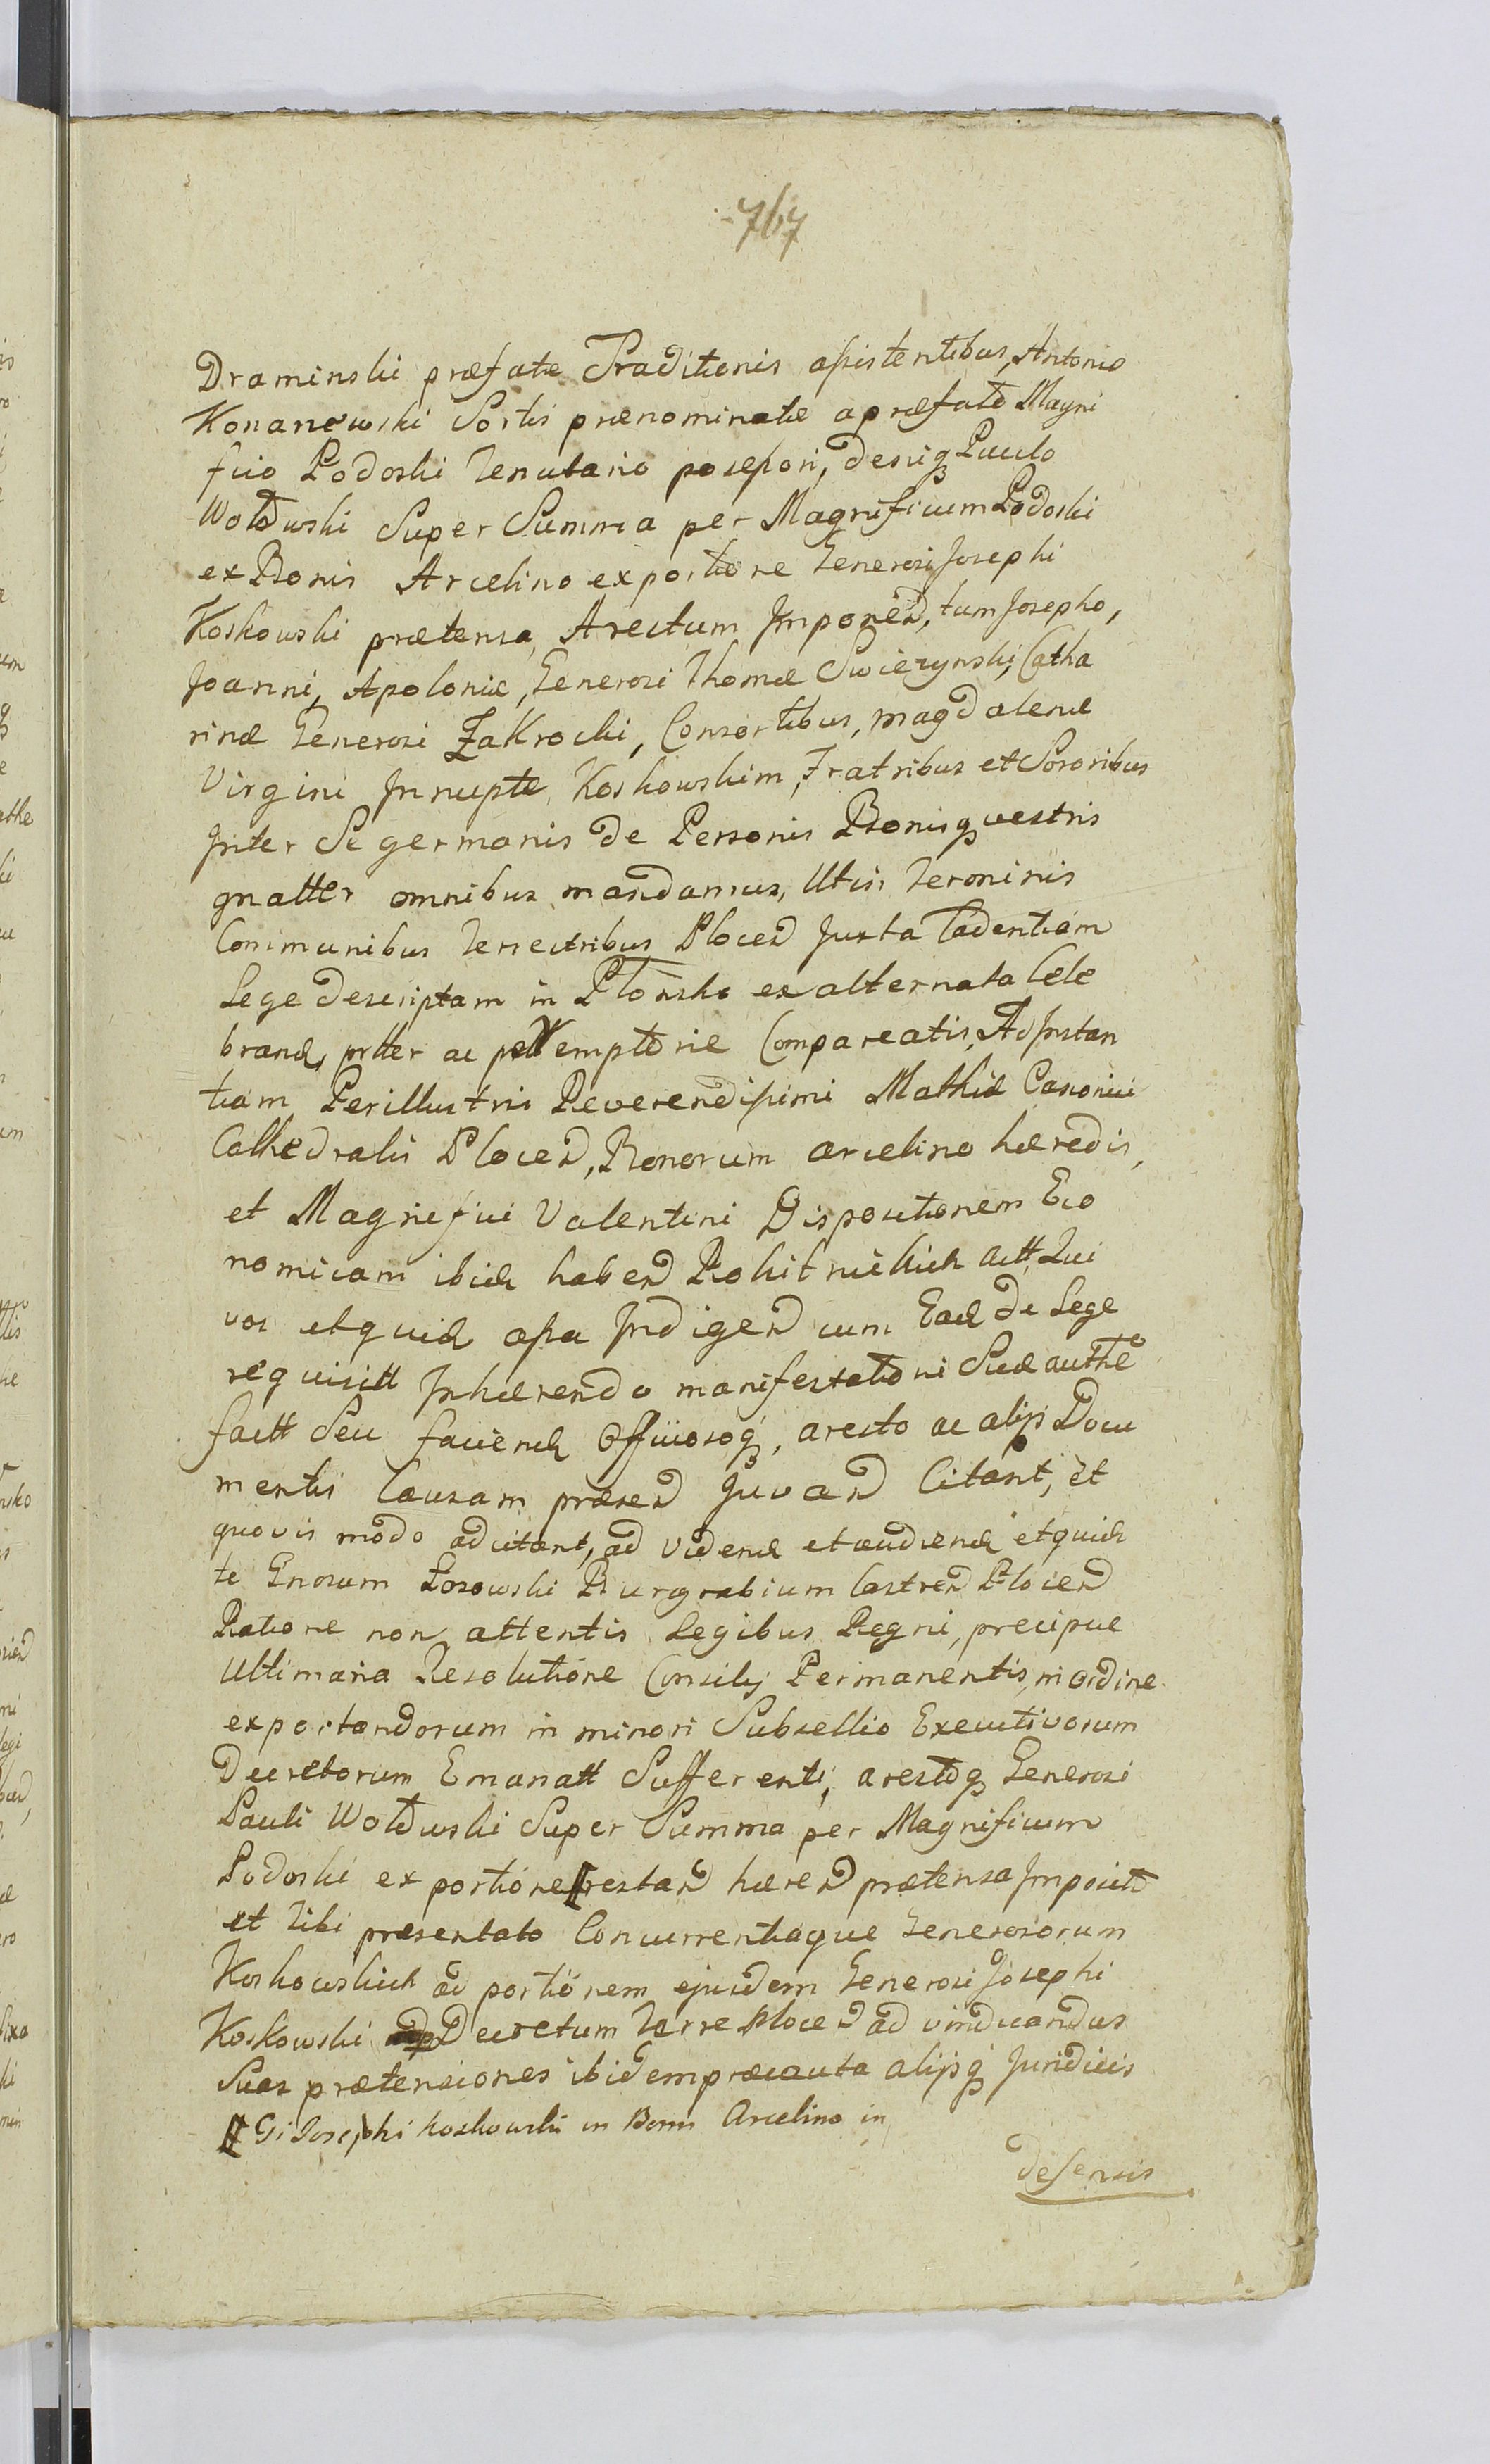 767
Draminski præfatæ Traditionis assistentibus, Antonio
Konanowski Sortis prænominatæ a præfato Magni
fico Podoski Tenutario possessori, deniq Paulo
Wołowski Super Summa per Magnificum Podoski
ex Bonis Arcelino ex portione Generosi Josephi
Koskowski prætensa, Arestum Imponeñ, tum Josepho,
Joanni, Apoloniæ, Generosi Thomæ Swierzynski, Catha
rinæ Generosi Zakrocki, Consortibus, Magdalenæ
Virgini Innuptæ, Koskowskim, Fratribus et Sororibus
Inter Se germanis de Personis Bonisq vestris
gnatter omnibus mandamus, Utin Terminis
Communibus Terrestribus Plocen Juxta Cadentiam
Lege descriptam in Płonsko ex alternata Cele
brand, prtter ac peremptorie Compareatis, Ad Instan
tiam Perillustris Reverendissimi Mathiæ Canonici
Cathedralis Plocen, Bonorum Arcelino hæredis,
et Magnifici Valentini Dispositionem Eco
nomicam ibid haben Rokitnickich att Qui
vos et quid assa Indigen cum Ead de Lege
requisitt Inhærendo manifestationi Suæ authe
factt Seu faciend Officiosoq, aresto ac alijs Docu
mentis Causam præsen Juvan Citant, et
quovis modo adcitant, ad vidend et audiend et quid
te Gnosum Łosowski Burgrabium Castren Plocen
Ratione non attentis Legibus Regni, precipue
Ultimaria Resolutione Consilij Permanentis, in ordine
exportandorum in minori Subsellio Executivorum
Decretorum Emanatt Sufferenti, arestoq Generosi
Pauli Wołowski Super Summa per Magnificum
Podoski ex portione [restan hæren prætensa Imposito
et Tibi præsentato Concurrentiaque Generosorum
Koskowskich ad portionem ejusdem Generosi Josephi
Koskowski Decretum Terre Plocen ad vindicandas
Suas prætensiones ibidem præcauta alijsq Juridicis
[ Gi Josephi Koskowski in Bonis Arcelino in
defensis